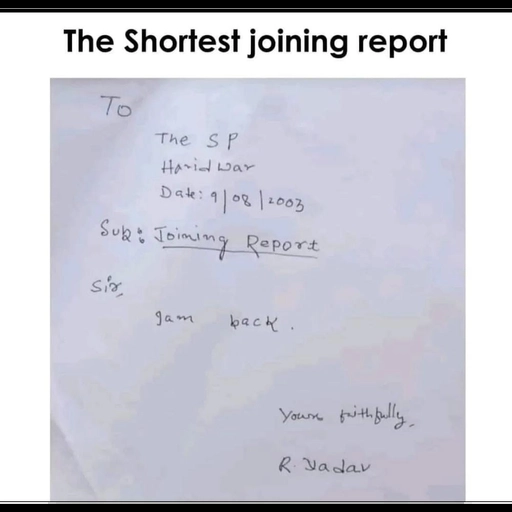 The Shortest joining report
To
The SP
Haridwar
Date: 9/08/2003
Sub: Joining Report
Sir,
I am back.
Yours faithfully,
R. Yadav